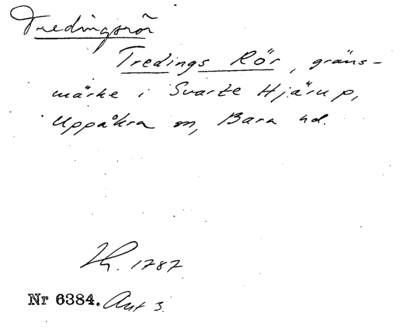 Tredingsrör
Tredings Rör, gräns-
märke i Svarte Hjärup,
Uppåkra sn, Bara hd.
1787
Nr 6384. Ant 3.